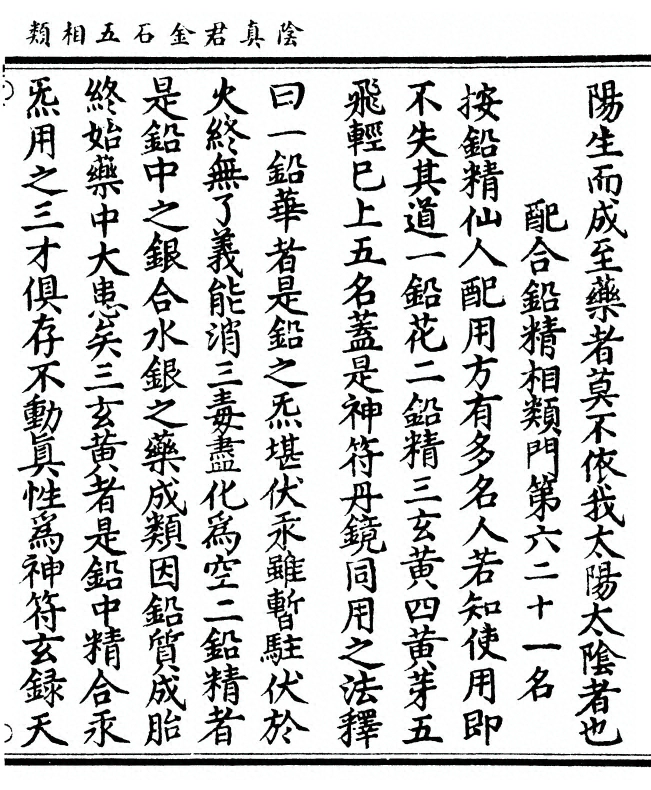 陰真君金石五相類
陽生而成至藥者莫不依我太陽太陰者也
配合鉛精相類門第六二十一名
按鉛精仙人配用方有多名人若知使用即
不失其道一鉛花二鉛精三玄黃四黃芽五
飛輕巳上五名蓋是神符丹鏡同用之法釋
曰一鉛華者是鉛之炁堪伏汞雖暫駐伏於
火終無了義能消三毒盡化為空二鉛精者
是鉛中之銀合水銀之藥成類因鉛質成胎
終始藥中大患矣三玄黃者是鉛中精合汞
炁用之三才俱存不動真性為神符玄録天